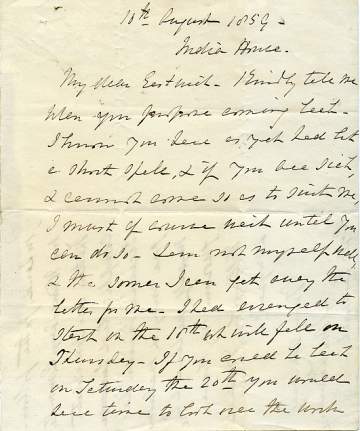 10th August 1859 -
India House.
My dear Eastwick - Kindly tell me
when you propose coming back -
I know you have as yet had but
a short spell, & if you are sick,
& cannot come so as to suit me,
I must of course wait until you
can do so - I am not myself well,
& the sooner I can get away the
better for me - I had arranged to
start on the 18th which falls on
Thursday - If you could be back
on Saturday the 20th you would
have time to look over the work